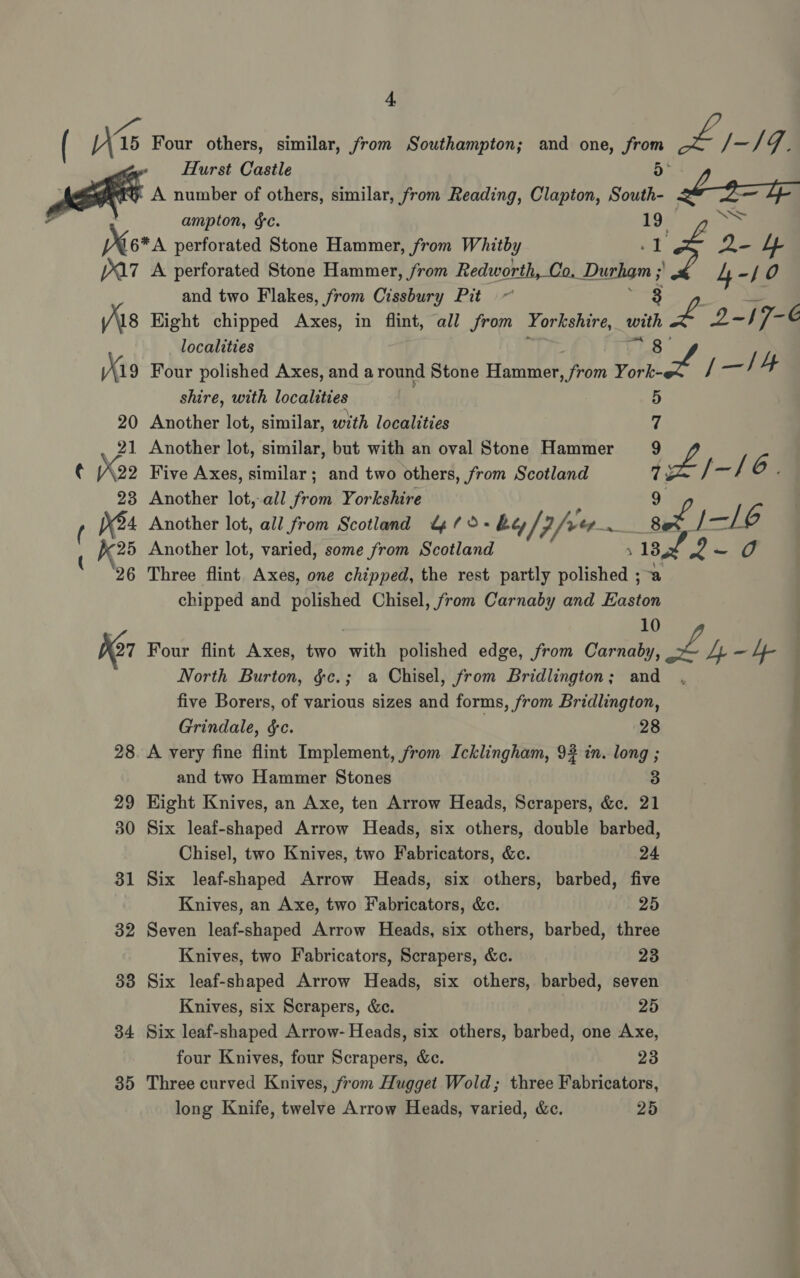 4
15 Four others, similar, from Southampton; and one, from £1-19.
Hurst Castle 5
A number of others, similar, from Reading, Clapton, South- £ 2-4
ampton, &c. 19
16*A perforated Stone Hammer, from Whitby 1 £ 2-4
17 A perforated Stone Hammer, from Redworth, Co. Durham; £ 4-10
and two Flakes, from Cissbury Pit 3
18 Eight chipped Axes, in flint, all from Yorkshire, with £ 2-17-6
localities 8
19 Four polished Axes, and a round Stone Hammer, from York- £ 1-14
shire, with localities 5
20 Another lot, similar, with localities 7
21 Another lot, similar, but with an oval Stone Hammer 9
22 Five Axes, similar; and two others, from Scotland 7 £1-16.
23 Another lot, all from Yorkshire 9
24 Another lot, all from Scotland 8 £1-16
25 Another lot, varied, some from Scotland 13 £ 2-0
26 Three flint Axes, one chipped, the rest partly polished; a
chipped and polished Chisel, from Carnaby and Easton
10
27 Four flint Axes, two with polished edge, from Carnaby, £ 4-4
North Burton, &c.; a Chisel, from Bridlington; and
five Borers, of various sizes and forms, from Bridlington,
Grindale, &c. 28
28 A very fine flint Implement, from Icklingham, 9¾ in. long;
and two Hammer Stones 3
29 Eight Knives, an Axe, ten Arrow Heads, Scrapers, &c. 21
30 Six leaf-shaped Arrow Heads, six others, double barbed,
Chisel, two Knives, two Fabricators, &c. 24
31 Six leaf-shaped Arrow Heads, six others, barbed, five
Knives, an Axe, two Fabricators, &c. 25
32 Seven leaf-shaped Arrow Heads, six others, barbed, three
Knives, two Fabricators, Scrapers, &c. 23
33 Six leaf-shaped Arrow Heads, six others, barbed, seven
Knives, six Scrapers, &c. 25
34 Six leaf-shaped Arrow-Heads, six others, barbed, one Axe,
four Knives, four Scrapers, &c. 23
35 Three curved Knives, from Hugget Wold; three Fabricators,
long Knife, twelve Arrow Heads, varied, &c. 25